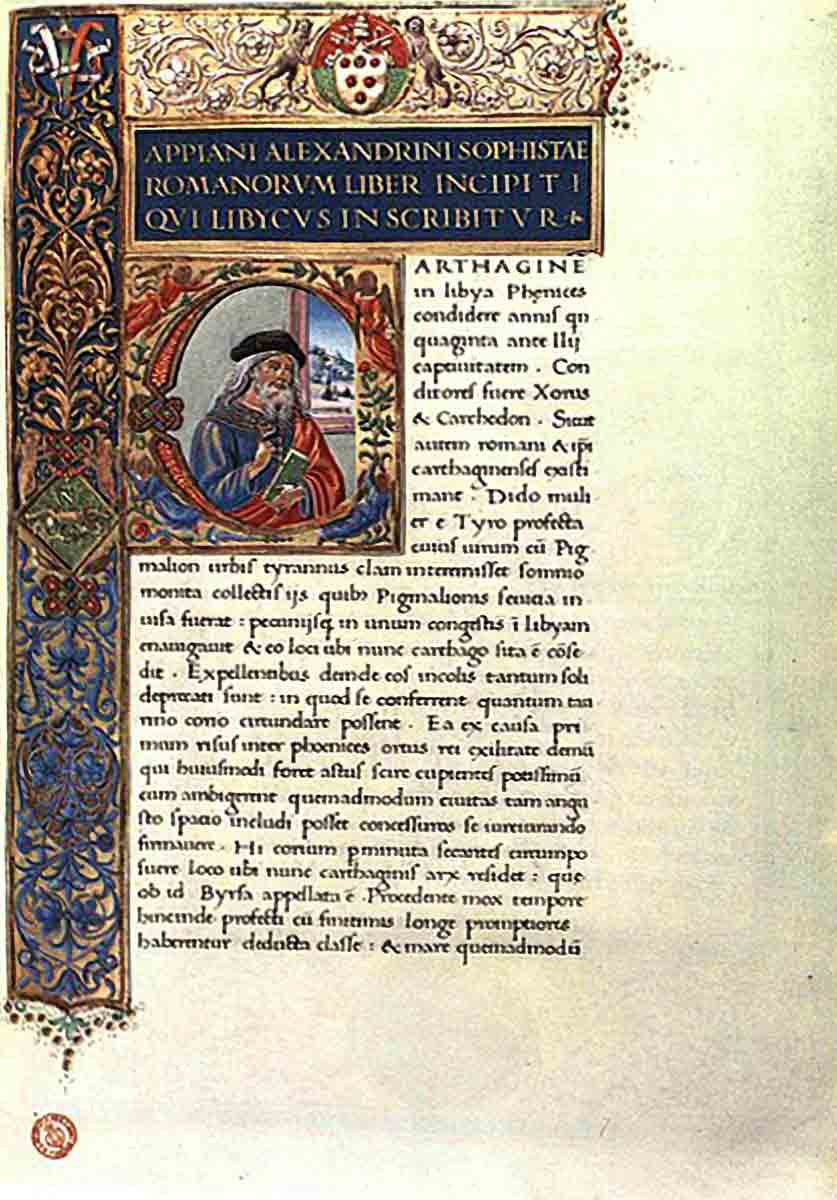 APPIANI ALEXANDRINI SOPHISTAE
ROMANORVM LIBER INCIPIT I
QVI LIBYCVS INSCRIBITVR
CARTHAGINE
in libya Phenices
condidere annis qn
quaginta ante Ilij
captiuitatem . Con
ditores fuere Xorus
& Carchedon . Sicut
autem romani & ip̄i
carthaginenses existi
mant : Dido muli
er e Tyro profecta
cuius uirum cū Pig
malion urbis tyrannus clam interemisset somnio
monita collectis ijs quib Pigmalionis seuicia in
uisa fuerat : pecunijsq in unum congestis ī libyam
enauigauit & eo loci ubi nunc carthago sita ē cōse
dit . Expellentibus deinde eos incolis tantum soli
deprecati sunt : in quod se conferrent quantum tau
rino corio circundare possent . Ea ex causa pri
mum risus inter phoenices ortus rei exilitate demū
qui huiusmodi foret astus scire cupientes potissimū
cum ambigerent quemadmodum ciuitas tam angu
sto spacio includi posset concessuros se iureiurando
firmauere . Hi corium pminuta secantes circumpo
suere loco ubi nunc carthaginis arx residet : quę
ob id Byrsa appellata ē . Procedente mox tempore
hincinde profecti cū finitimis longe promptiores
haberentur deducta classe : & mare quemadmodū